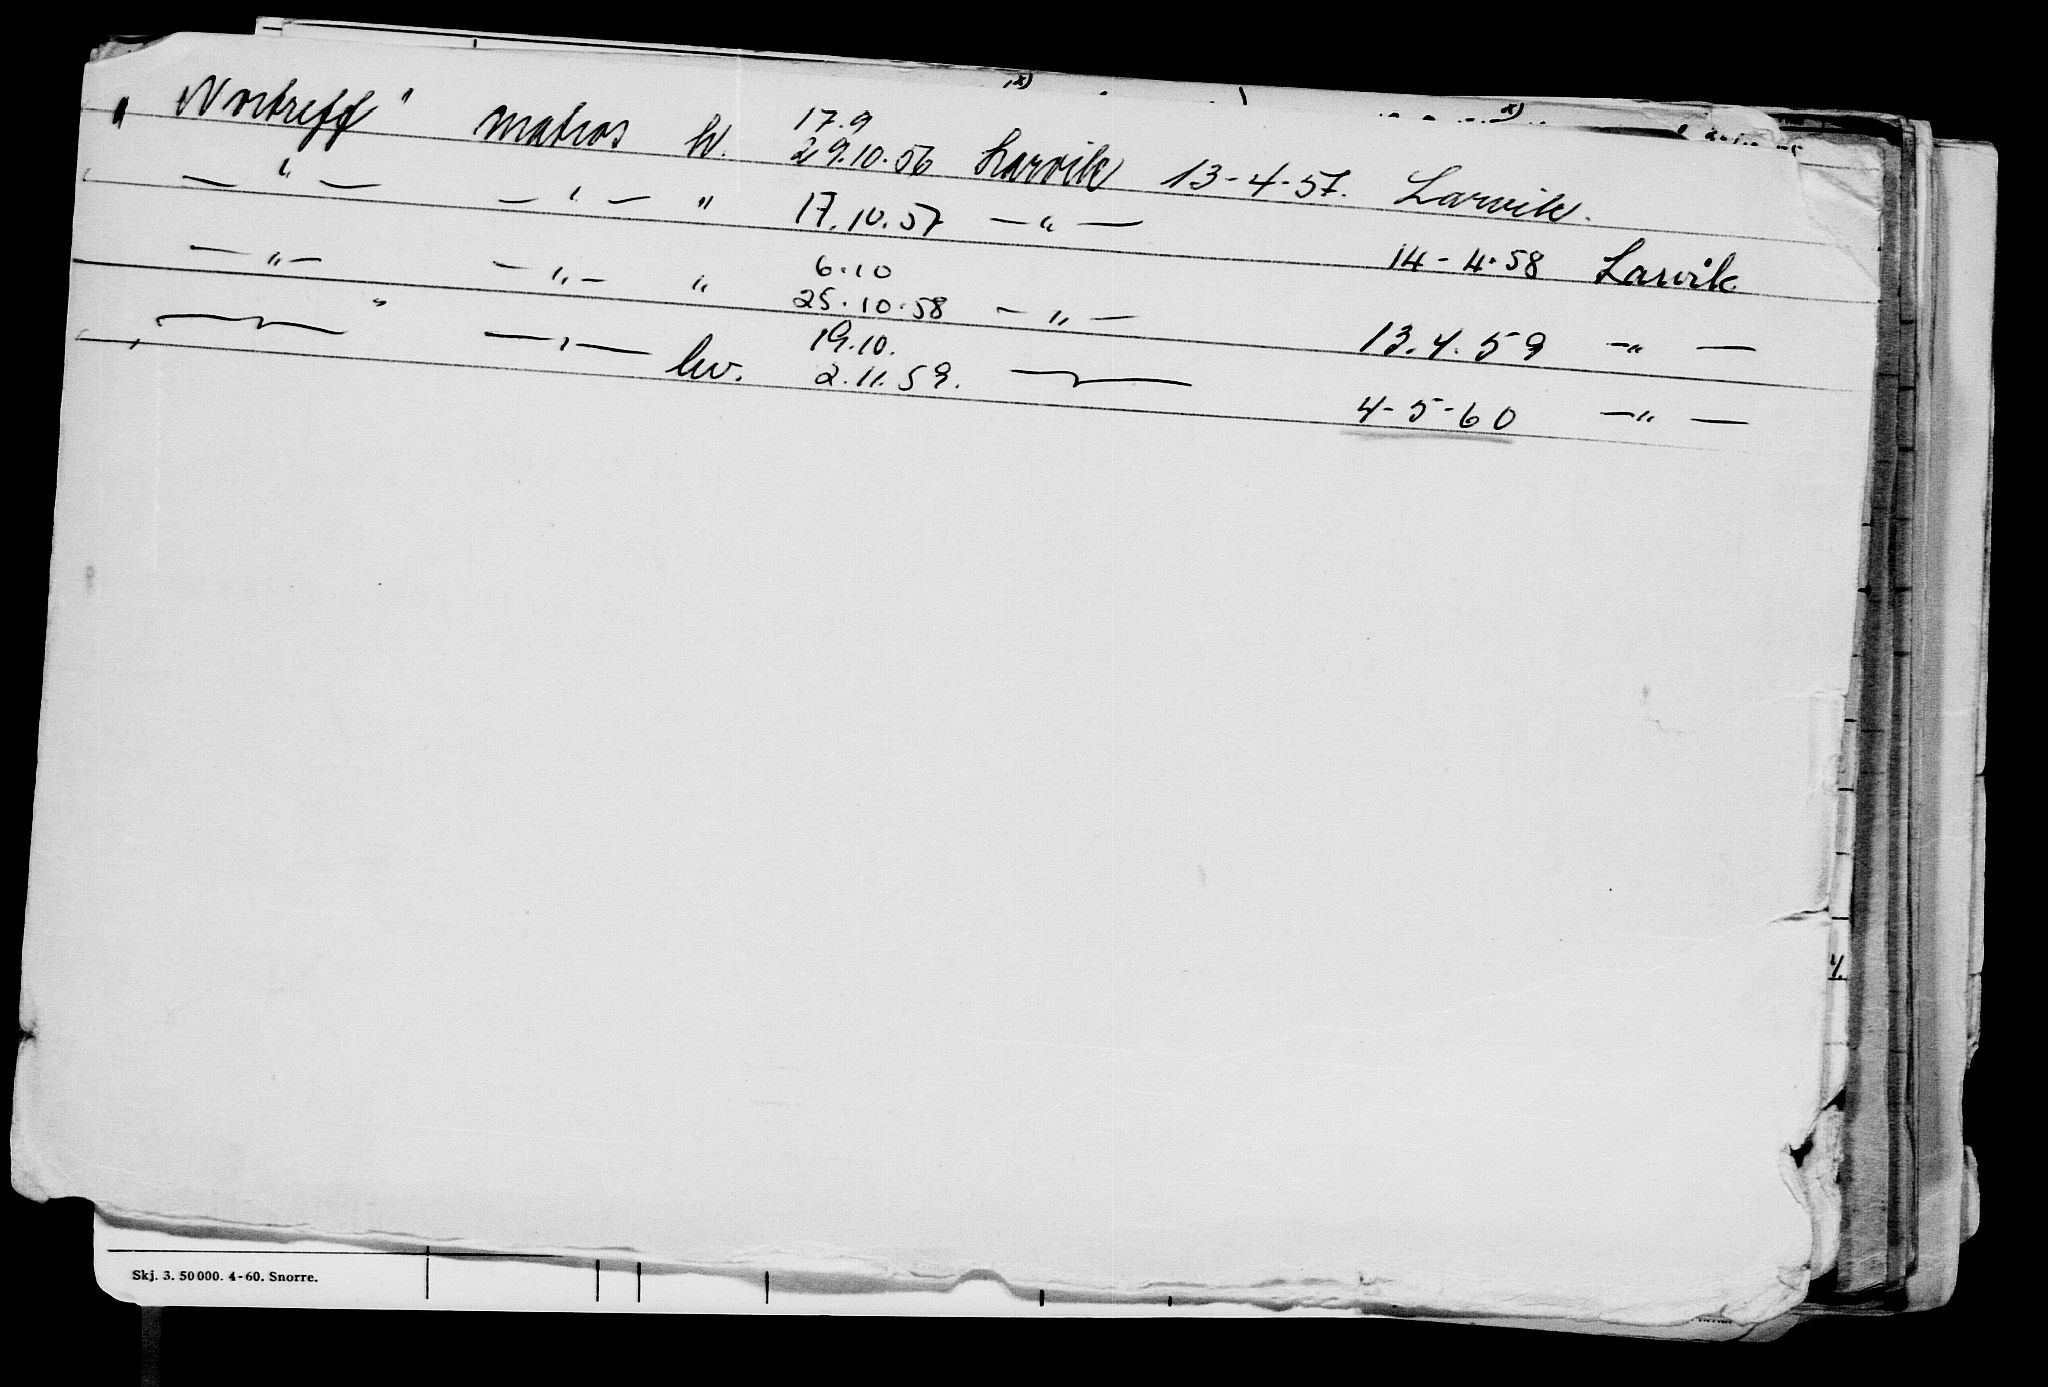 17.9
" Nortreff " matros hv. 29.10.56 Larvik 13-4-57. Larvik.
— " — — " — " 17.10.57 — " — 14-4-58 Larvik
6.10
— " — — " — " 25.10.58 — " — 13.4.59 — " —
19.10.
— " — — " — hv. 2.11.59. — " — 4-5-60 — " —
Skj. 3. 50 000. 4-60. Snorre.